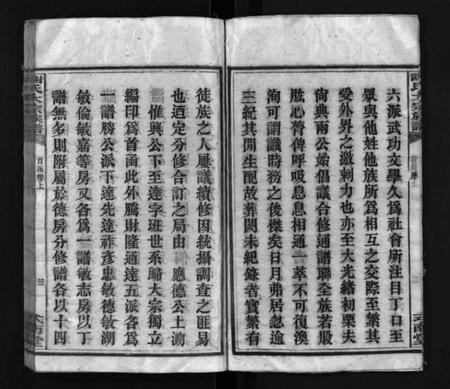 六派武功文學久爲社會所注目丁口至
眾與他姓他族所爲相互之交際至繁其
愛外界之激刺力也亦至大光緒初栗夫
尙典兩公始倡議合修通譜聯全族若股
肱心膂俾呼吸息息相通一萃不可復渙
洵可謂識時務之後傑矣日月弗居忽逾
三紀其間生配故葬闕未紀錄者實繁有
徒族之人屢議續修因統攝調查之匪易
也迺定分修合訂之局由　應德公上溯
惟興公下至達字班世系歸大宗獨立
編印爲首函此外騰財隆通達五派各爲
一譜勝公派下遠先達祚彥忠敏德敏湖
敏倫敏嘉等房又各爲一譜敏志房以丁
譜無多則附屬於德房分修譜各以十四
謝氏大宗族譜
首函卷上
三